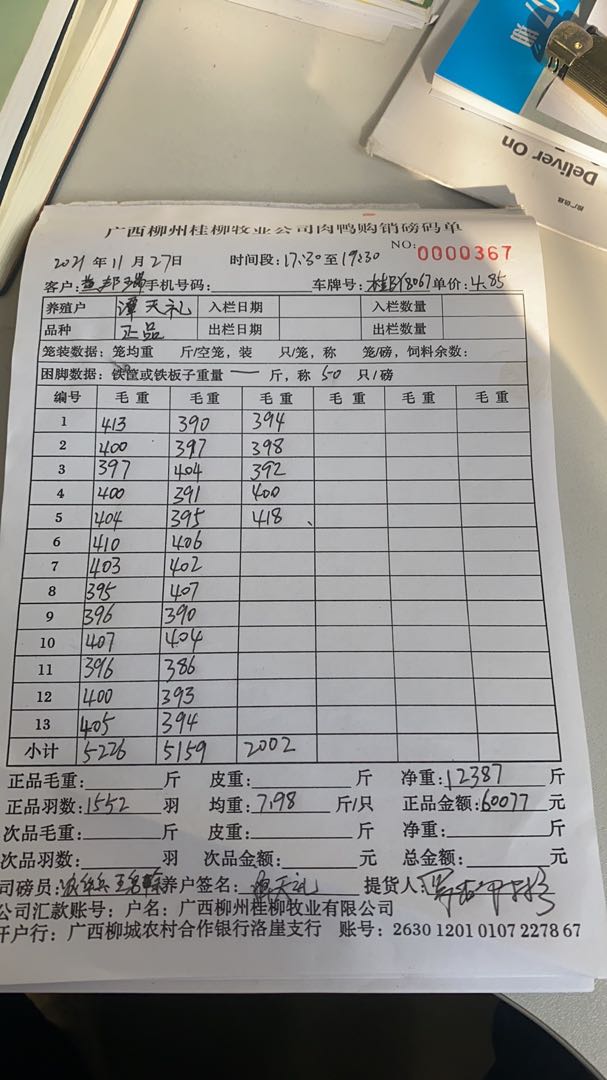 Deliver On
广西柳州桂柳牧业公司肉鸭购销磅码单
2021 年 11 月 27日 时间段:17:30 至 19:30 NO: 0000367
客户: 手机号码: 车牌号:桂BY8067 单价:4.85
养殖户 谭天礼 入栏日期 入栏数量
品种 正品 出栏日期 出栏数量
笼装数据:笼均重 斤/空笼,装 只/笼,称 笼/磅,饲料余数:
困脚数据:铁筐或铁板子重量 一 斤,称 50 只/磅
编号 毛重 毛重 毛重 毛重 毛重 毛重
1 413 390 394
2 400 397 398
3 397 404 392
4 400 391 400
5 404 395 418
6 410 406
7 403 402
8 395 407
9 396 390
10 407 404
11 396 386
12 400 393
13 405 394
小计 5226 5159 2002
正品毛重: 斤 皮重: 斤 净重:12387 斤
正品羽数:1552 羽 均重:7.98 斤/只 正品金额:60077 元
次品毛重: 斤 皮重: 斤 净重: 斤
次品羽数: 羽 次品金额: 元 总金额: 元
司磅员: 养户签名:谭天礼 提货人:
公司汇款账号:户名:广西柳州桂柳牧业有限公司
开户行:广西柳城农村合作银行洛崖支行 账号:2630 1201 0107 2278 67